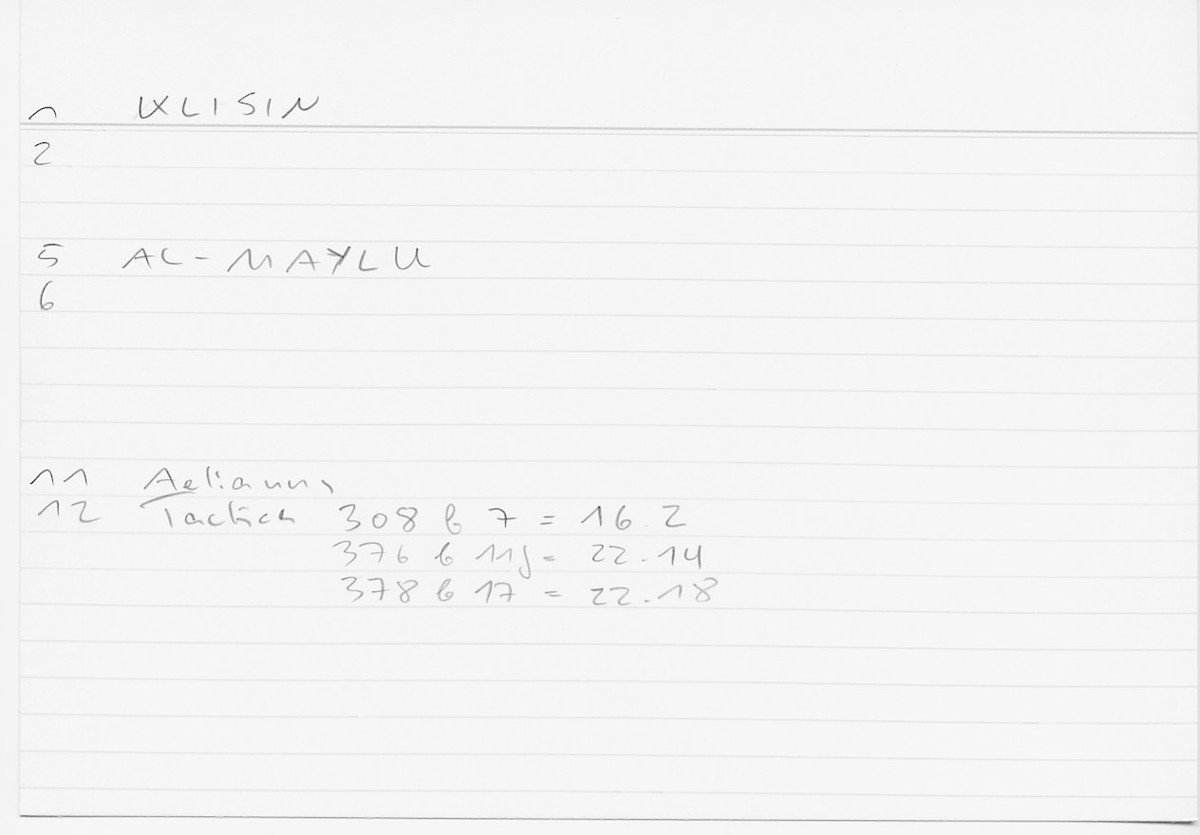 1 KLISIN
2
5 AL-MAYLU
6
11 Aelianus
12 Tactica 308 b 7 = 16.2
376 b 11f = 22.14
378 b 17 = 22.18